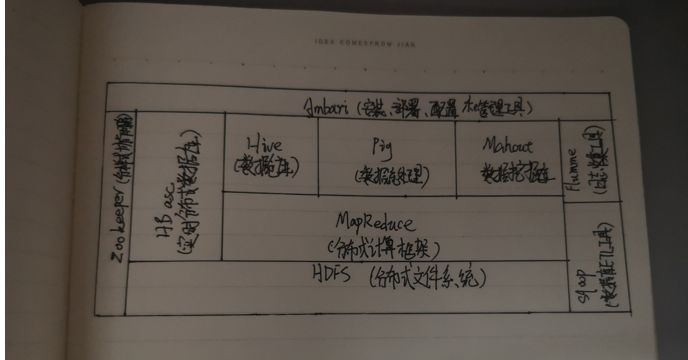 IDEA COMES FROM JIAN
Ambari (安装、部署、配置和管理工具)
Zookeeper (分布式协作服务)
HBase
(实时分布式数据库)
Hive
(数据仓库)
Pig
(数据流处理)
Mahout
数据挖掘库
Flumme
(日志收集工具)
MapReduce
(分布式计算框架)
HDFS (分布式文件系统)
sqoop